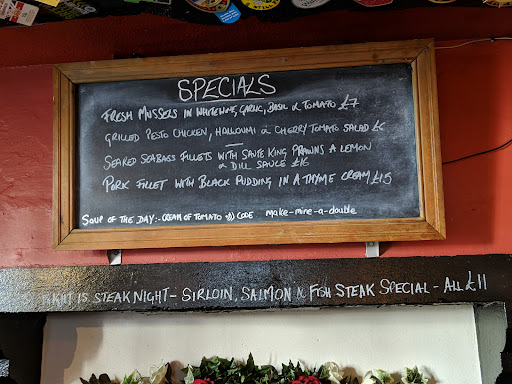 SPECIALS
FRESH MUSSELS IN WHITEWINE, GARLIC, BASIL & TOMATO £7
GRILLED PESTO CHICKEN, HALLOUMI & CHERRY TOMATO SALAD £6
SEARED SEABASS FILLETS WITH SAUTE KING PRAWNS A LEMON
& DILL SAUCE £16
PORK FILLET WITH BLACK PUDDING IN A THYME CREAM £15
SOUP OF THE DAY:- CREAM OF TOMATO CODE make-mine-a-double
IS STEAK NIGHT - SIRLOIN, SALMON & FISH STEAK SPECIAL - ALL £11